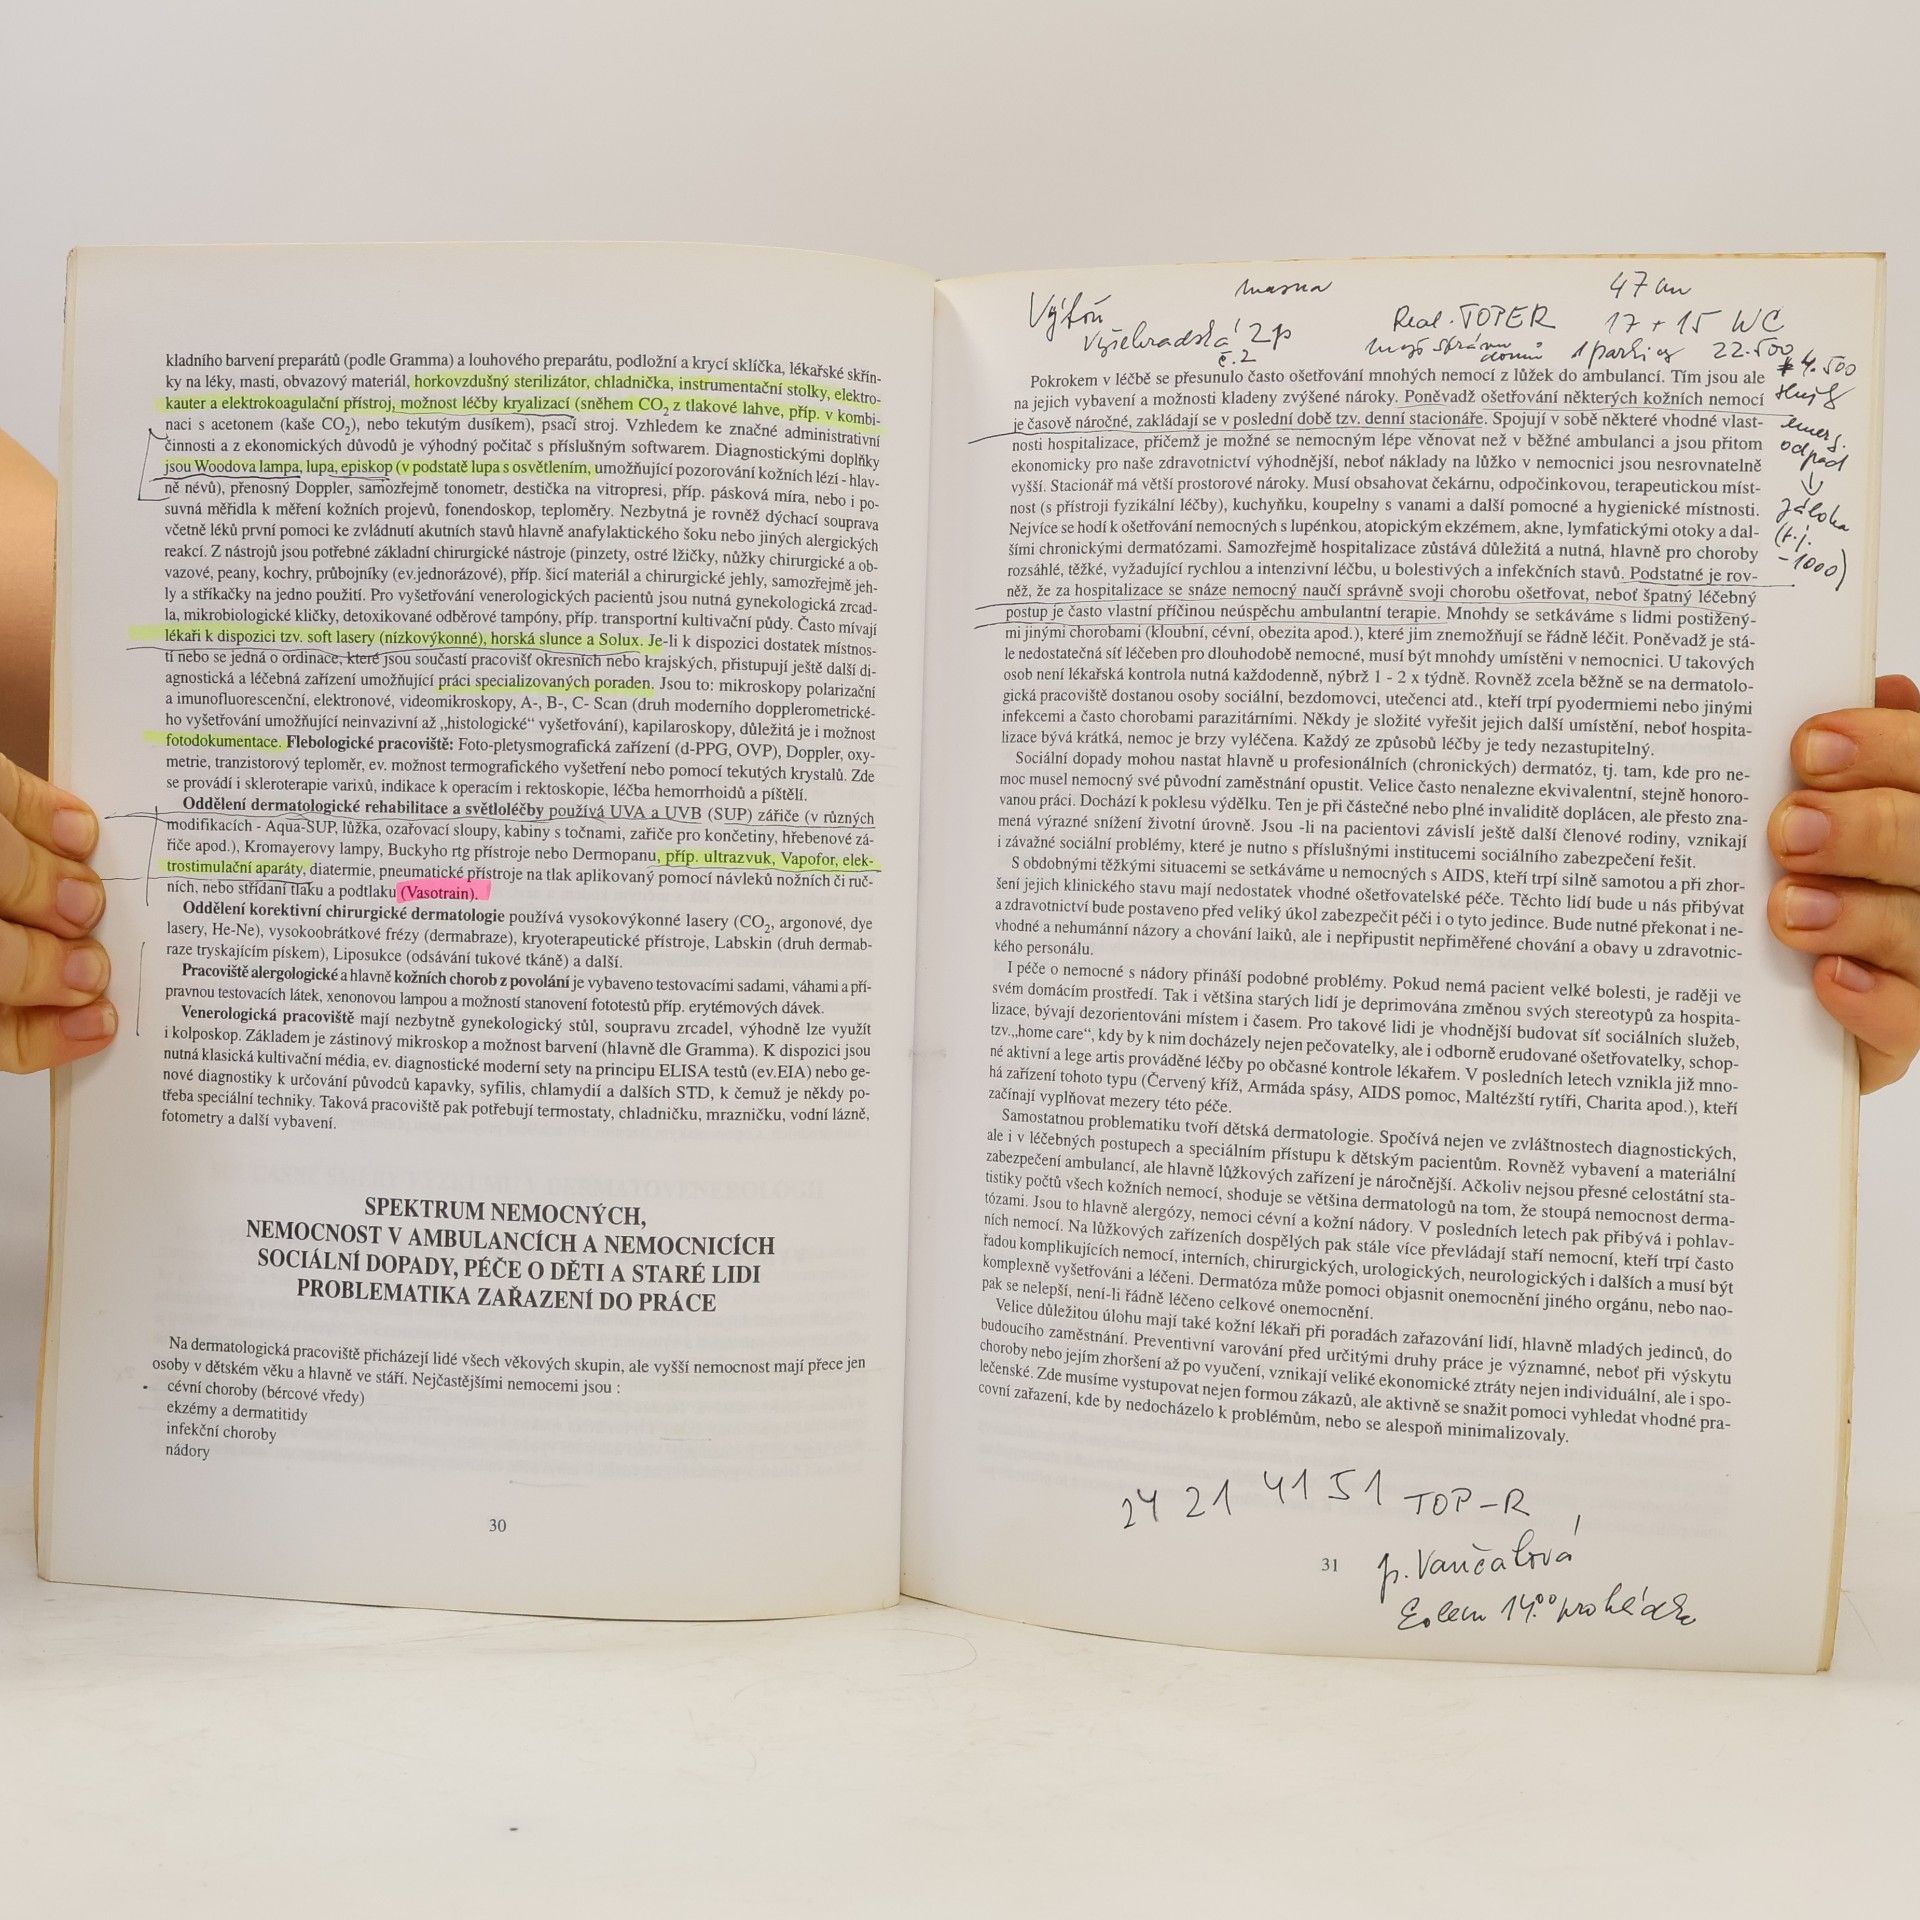 kladního barvení preparátů (podle Gramma) a louhového preparátu, podložní a krycí sklíčka, lékařské skřín-
ky na léky, masti, obvazový materiál, horkovzdušný sterilizátor, chladnička, instrumentační stolky, elektro-
kauter a elektrokoagulační přístroj, možnost léčby kryalizací (sněhem CO2 z tlakové lahve, příp. v kombi-
naci s acetonem (kaše CO2), nebo tekutým dusíkem), psací stroj. Vzhledem ke značné administrativní
činnosti a z ekonomických důvodů je výhodný počitač s příslušným softwarem. Diagnostickými doplňky
jsou Woodova lampa, lupa, episkop (v podstatě lupa s osvětlením, umožňující pozorování kožních lézí - hlav-
ně névů), přenosný Doppler, samozřejmě tonometr, destička na vitropresi, příp. pásková míra, nebo i po-
suvná měřidla k měření kožních projevů, fonendoskop, teploměry. Nezbytná je rovněž dýchací souprava
včetně léků první pomoci ke zvládnutí akutních stavů hlavně anafylaktického šoku nebo jiných alergických
reakcí. Z nástrojů jsou potřebné základní chirurgické nástroje (pinzety, ostré lžičky, nůžky chirurgické a ob-
vazové, peany, kochry, průbojníky (ev.jednorázové), příp. šicí materiál a chirurgické jehly, samozřejmě jeh-
ly a stříkačky na jedno použití. Pro vyšetřování venerologických pacientů jsou nutná gynekologická zrcad-
la, mikrobiologické kličky, detoxikované odběrové tampóny, příp. transportní kultivační půdy. Často mívají
lékaři k dispozici tzv. soft lasery (nízkovýkonné), horská slunce a Solux. Je-li k dispozici dostatek místnos-
tí nebo se jedná o ordinace, které jsou součastí pracovišť okresních nebo krajských, přistupují ještě další di-
agnostická a léčebná zařízení umožňující práci specializovaných poraden. Jsou to: mikroskopy polarizační
a imunofluorescenční, elektronové, videomikroskopy, A-, B-, C- Scan (druh moderního dopplerometrické-
ho vyšetřování umožňující neinvazivní až „histologické“ vyšetřování), kapilaroskopy, důležitá je i možnost
fotodokumentace. Flebologické pracoviště: Foto-pletysmografická zařízení (d-PPG, OVP), Doppler, oxy-
metrie, tranzistorový teploměr, ev. možnost termografického vyšetření nebo pomocí tekutých krystalů. Zde
se provádí i skleroterapie varixů, indikace k operacím i rektoskopie, léčba hemorrhoidů a píštělí.
Oddělení dermatologické rehabilitace a světloléčby používá UVA a UVB (SUP) zářiče (v různých
modifikacích - Aqua-SUP, lůžka, ozařovací sloupy, kabiny s točnami, zářiče pro končetiny, hřebenové zá-
řiče apod.), Kromayerovy lampy, Buckyho rtg přístroje nebo Dermopanu, příp. ultrazvuk, Vapofor, elek-
trostimulační aparáty, diatermie, pneumatické přístroje na tlak aplikovaný pomocí návleků nožních či ruč-
ních, nebo střídání tlaku a podtlaku (Vasotrain).
Oddělení korektivní chirurgické dermatologie používá vysokovýkonné lasery (CO2, argonové, dye
lasery, He-Ne), vysokoobrátkové frézy (dermabraze), kryoterapeutické přístroje, Labskin (druh dermab-
raze tryskajícím pískem), Liposukce (odsávání tukové tkáně) a další.
Pracoviště alergologické a hlavně kožních chorob z povolání je vybaveno testovacími sadami, váhami a pří-
pravnou testovacích látek, xenonovou lampou a možností stanovení fototestů příp. erytémových dávek.
Venerologická pracoviště mají nezbytně gynekologický stůl, soupravu zrcadel, výhodně lze využít
i kolposkop. Základem je zástinový mikroskop a možnost barvení (hlavně dle Gramma). K dispozici jsou
nutná klasická kultivační média, ev. diagnostické moderní sety na principu ELISA testů (ev.EIA) nebo ge-
nové diagnostiky k určování původců kapavky, syfilis, chlamydií a dalších STD, k čemuž je někdy po-
třeba speciální techniky. Taková pracoviště pak potřebují termostaty, chladničku, mrazničku, vodní lázně,
fotometry a další vybavení.
SPEKTRUM NEMOCNÝCH,
NEMOCNOST V AMBULANCÍCH A NEMOCNICÍCH
SOCIÁLNÍ DOPADY, PÉČE O DĚTI A STARÉ LIDI
PROBLEMATIKA ZAŘAZENÍ DO PRÁCE
Na dermatologická pracoviště přicházejí lidé všech věkových skupin, ale vyšší nemocnost mají přece jen
osoby v dětském věku a hlavně ve stáří. Nejčastějšími nemocemi jsou :
cévní choroby (bércové vředy)
ekzémy a dermatitidy
infekční choroby
nádory
30
masna 47
Výtoň Real. TOPER 17 + 15 WC
Vyšehradská 2p správu domů 1 22.500
č.2
4.500
odpad
záloha
(t.j.
-1000)
Pokrokem v léčbě se přesunulo často ošetřování mnohých nemocí z lůžek do ambulancí. Tím jsou ale
na jejich vybavení a možnosti kladeny zvýšené nároky. Poněvadž ošetřování některých kožních nemocí
je časově náročné, zakládají se v poslední době tzv. denní stacionáře. Spojují v sobě některé vhodné vlast-
nosti hospitalizace, přičemž je možné se nemocným lépe věnovat než v běžné ambulanci a jsou přitom
ekonomicky pro naše zdravotnictví výhodnější, neboť náklady na lůžko v nemocnici jsou nesrovnatelně
vyšší. Stacionář má větší prostorové nároky. Musí obsahovat čekárnu, odpočinkovou, terapeutickou míst-
nost (s přístroji fyzikální léčby), kuchyňku, koupelny s vanami a další pomocné a hygienické místnosti.
Nejvíce se hodí k ošetřování nemocných s lupénkou, atopickým ekzémem, akne, lymfatickými otoky a dal-
šími chronickými dermatózami. Samozřejmě hospitalizace zůstává důležitá a nutná, hlavně pro choroby
rozsáhlé, těžké, vyžadující rychlou a intenzivní léčbu, u bolestivých a infekčních stavů. Podstatné je rov-
něž, že za hospitalizace se snáze nemocný naučí správně svoji chorobu ošetřovat, neboť špatný léčebný
postup je často vlastní příčinou neúspěchu ambulantní terapie. Mnohdy se setkáváme s lidmi postižený-
mi jinými chorobami (kloubní, cévní, obezita apod.), které jim znemožňují se řádně léčit. Poněvadž je stá-
le nedostatečná síť léčeben pro dlouhodobě nemocné, musí být mnohdy umístěni v nemocnici. U takových
osob není lékařská kontrola nutná každodenně, nýbrž 1 - 2 x týdně. Rovněž zcela běžně se na dermatolo-
gická pracoviště dostanou osoby sociální, bezdomovci, utečenci atd., kteří trpí pyodermiemi nebo jinými
infekcemi a často chorobami parazitárními. Někdy je složité vyřešit jejich další umístění, neboť hospita-
lizace bývá krátká, nemoc je brzy vyléčena. Každý ze způsobů léčby je tedy nezastupitelný.
Sociální dopady mohou nastat hlavně u profesionálních (chronických) dermatóz, tj. tam, kde pro ne-
moc musel nemocný své původní zaměstnání opustit. Velice často nenalezne ekvivalentní, stejně honoro-
vanou práci. Dochází k poklesu výdělku. Ten je při částečné nebo plné invaliditě doplácen, ale přesto zna-
mená výrazné snížení životní úrovně. Jsou -li na pacientovi závislí ještě další členové rodiny, vznikají
i závažné sociální problémy, které je nutno s příslušnými institucemi sociálního zabezpečení řešit.
S obdobnými těžkými situacemi se setkáváme u nemocných s AIDS, kteří trpí silně samotou a při zhor-
šení jejich klinického stavu mají nedostatek vhodné ošetřovatelské péče. Těchto lidí bude u nás přibývat
a zdravotnictví bude postaveno před veliký úkol zabezpečit péči i o tyto jedince. Bude nutné překonat i ne-
vhodné a nehumánní názory a chování laiků, ale i nepřipustit nepřiměřené chování a obavy u zdravotnic-
kého personálu.
I péče o nemocné s nádory přináší podobné problémy. Pokud nemá pacient velké bolesti, je raději ve
svém domácím prostředí. Tak i většina starých lidí je deprimována změnou svých stereotypů za hospita-
lizace, bývají dezorientováni místem i časem. Pro takové lidi je vhodnější budovat síť sociálních služeb,
tzv.„home care“, kdy by k nim docházely nejen pečovatelky, ale i odborně erudované ošetřovatelky, schop-
né aktivní a lege artis prováděné léčby po občasné kontrole lékařem. V posledních letech vznikla již mno-
há zařízení tohoto typu (Červený kříž, Armáda spásy, AIDS pomoc, Maltézští rytíři, Charita apod.), kteří
začínají vyplňovat mezery této péče.
Samostatnou problematiku tvoří dětská dermatologie. Spočívá nejen ve zvláštnostech diagnostických,
ale i v léčebných postupech a speciálním přístupu k dětským pacientům. Rovněž vybavení a materiální
zabezpečení ambulancí, ale hlavně lůžkových zařízení je náročnější. Ačkoliv nejsou přesné celostátní sta-
tistiky počtů všech kožních nemocí, shoduje se většina dermatologů na tom, že stoupá nemocnost derma-
tózami. Jsou to hlavně alergózy, nemoci cévní a kožní nádory. V posledních letech pak přibývá i pohlav-
ních nemocí. Na lůžkových zařízeních dospělých pak stále více převládají staří nemocní, kteří trpí často
řadou komplikujících nemocí, interních, chirurgických, urologických, neurologických i dalších a musí být
komplexně vyšetřováni a léčeni. Dermatóza může pomoci objasnit onemocnění jiného orgánu, nebo nao-
pak se nelepší, není-li řádně léčeno celkové onemocnění.
Velice důležitou úlohu mají také kožní lékaři při poradách zařazování lidí, hlavně mladých jedinců, do
budoucího zaměstnání. Preventivní varování před určitými druhy práce je významné, neboť při výskytu
choroby nebo jejím zhoršení až po vyučení, vznikají veliké ekonomické ztráty nejen individuální, ale i spo-
lečenské. Zde musíme vystupovat nejen formou zákazů, ale aktivně se snažit pomoci vyhledat vhodné pra-
covní zařazení, kde by nedocházelo k problémům, nebo se alespoň minimalizovaly.
24 21 41 51 TOP-R
31
p. Vančatová
14.00 prohlídka